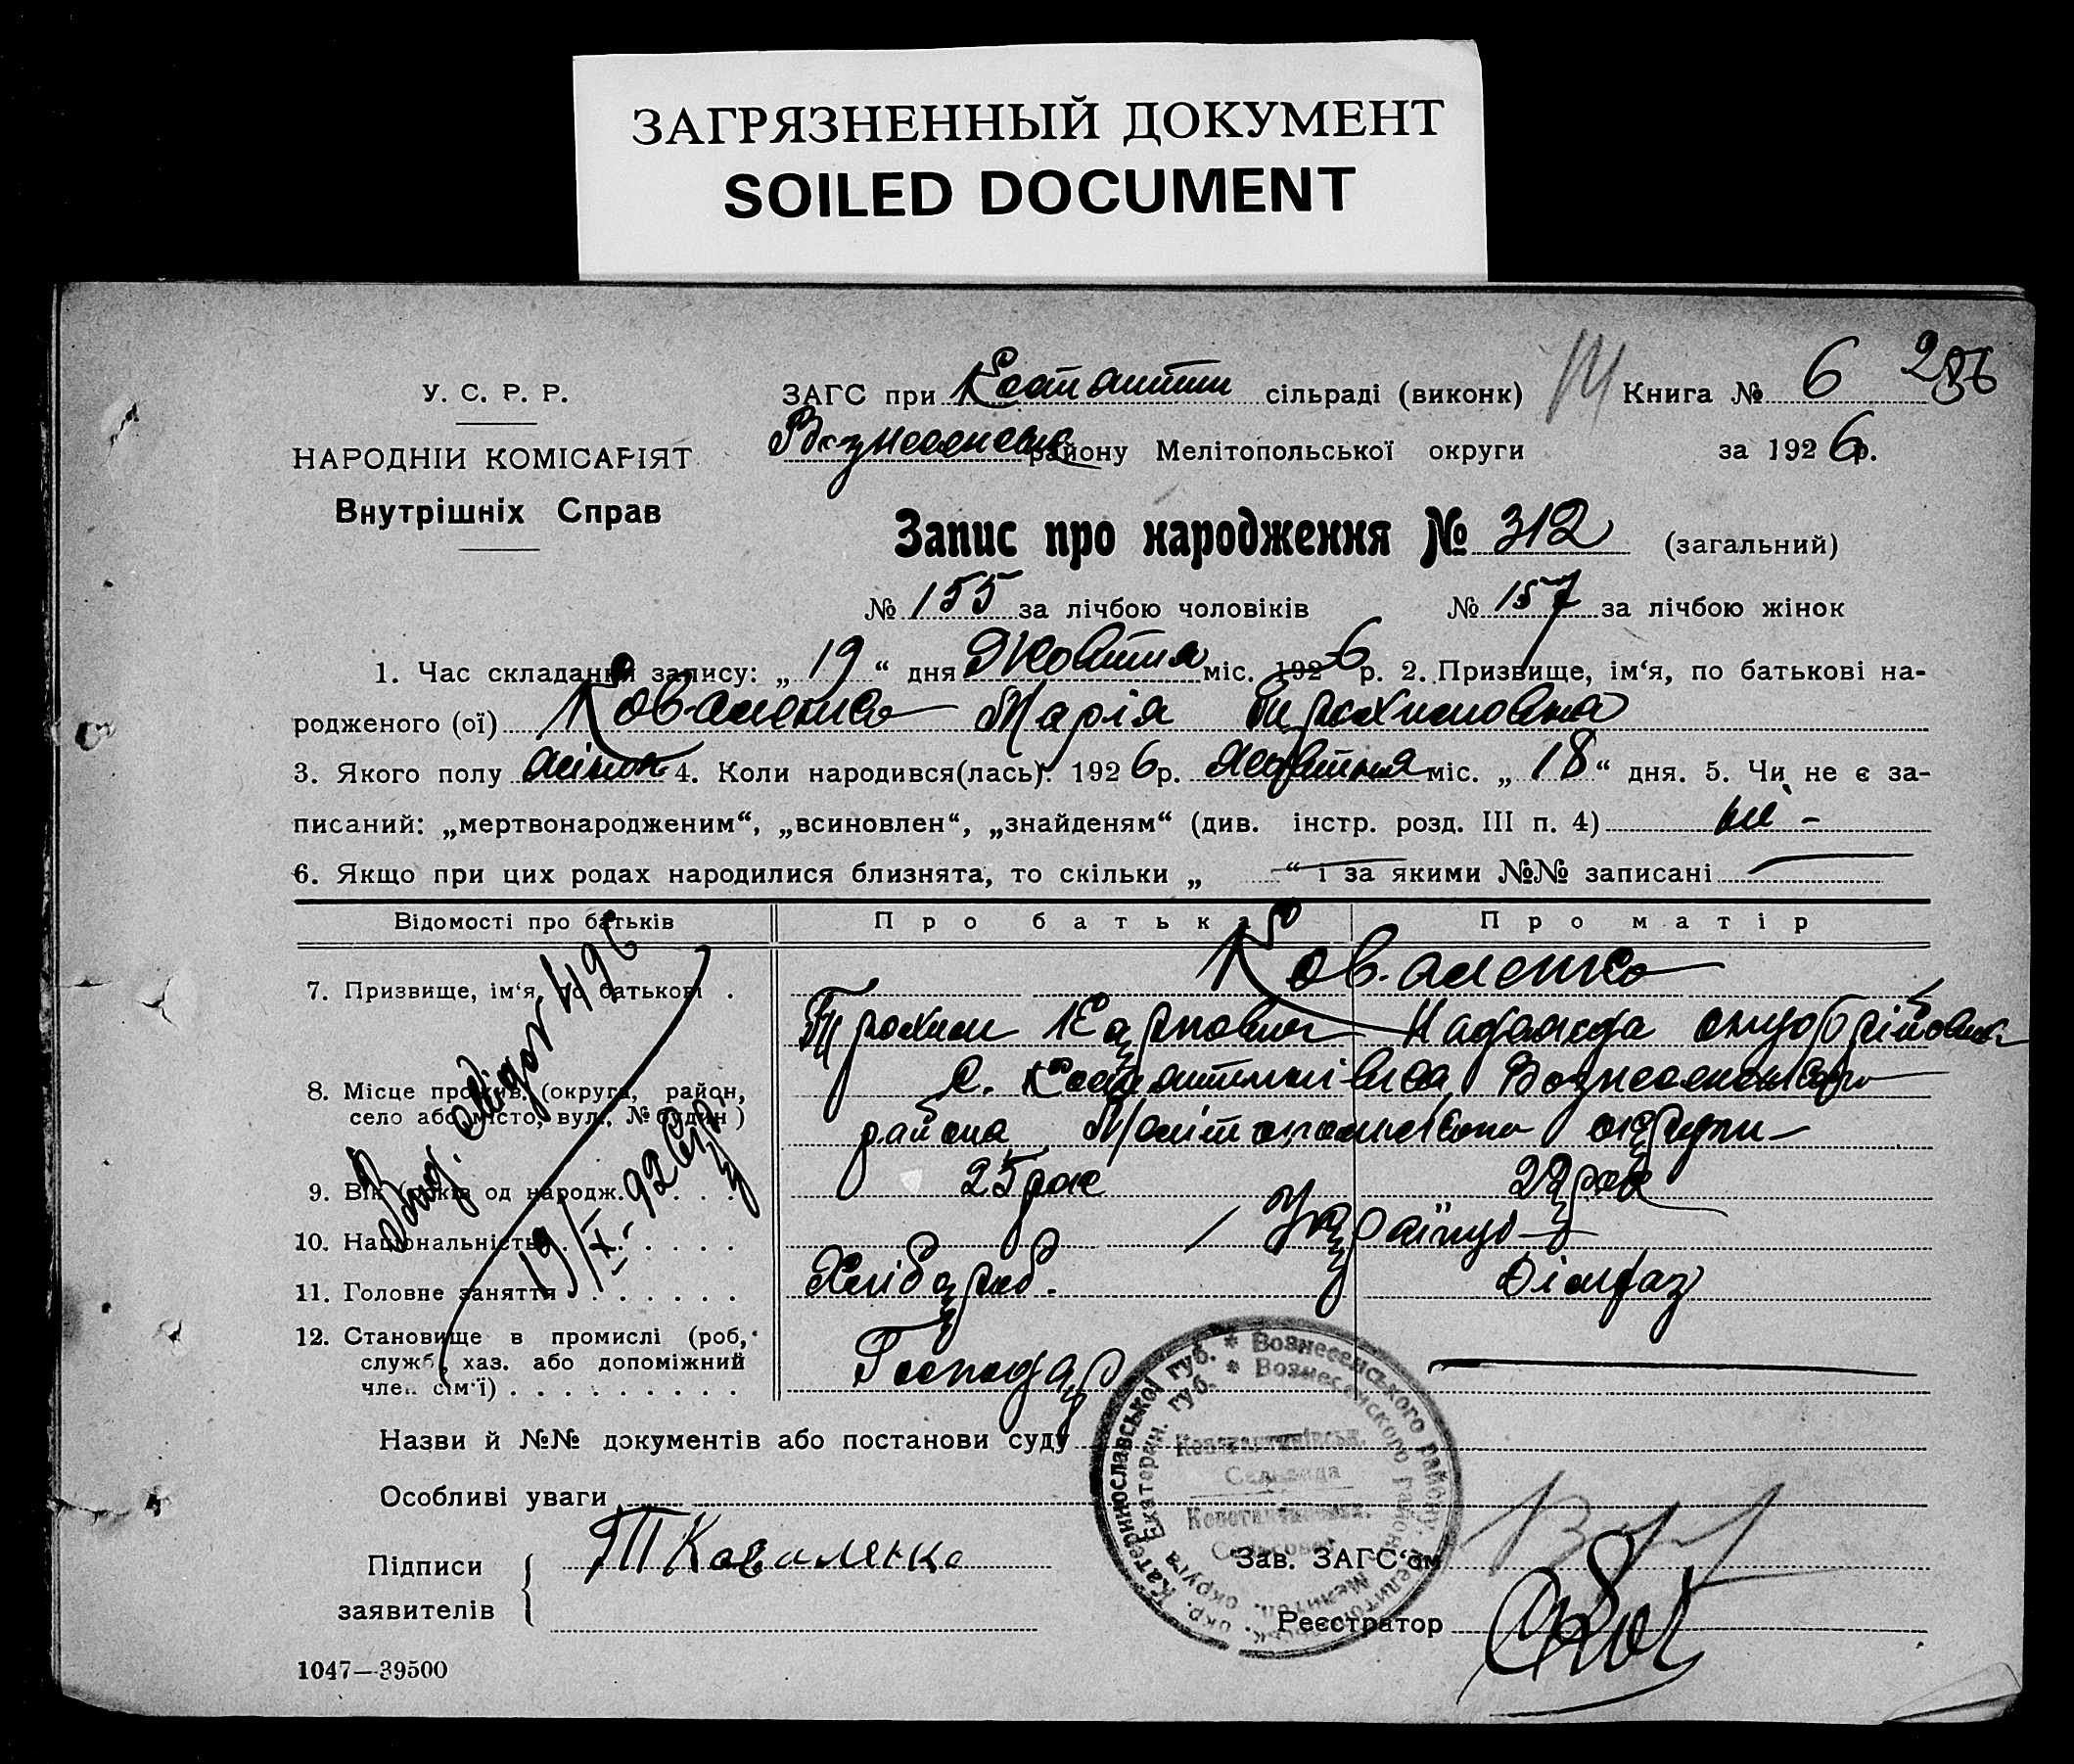 ЗАГРЯЗНЕННЫЙ ДОКУМЕНТ
SOILED DOCUMENT
У. С. Р. Р.
НАРОДНІЙ КОМІСАРІЯТ
Внутрішніх Справ
ЗАГС при сільраді (виконк) Книга № 6 256
району Мелітопольської округи за 1926 р.
Запис про народження № 312 (загальний)
№ 155 за лічбою чоловіків № 157 за лічбою жінок
1. Час складання запису: „ 19 “ дня Жовтня міс. 1926 р. 2. Призвище, ім‘я, по батькові на-
родженого (ої) Коваленко Марія Трохимовна
3. Якого полу 4. Коли народився(лась): 1926 р. Жовтня міс. „ 18 “ дня. 5. Чи не є за-
писаний: „мертвонародженим“, „всиновлен“, „знайденям“ (див. інстр. розд. III п. 4) ні -
6. Якщо при цих родах народилися близнята, то скільки „ “ і за якими №№ записані
Відомості про батьків Про батька Про матір
7. Призвище, ім‘я, по батькові . Коваленко
Трохим Карпович Надежда
8. Місце прожив. (округа, район,
село або місто, вул., № будин)
с. Константинівка, Вознесенського
района Мелітопольської округи
9. Вік (років од народж. 25 рок 22 рок
10. Національність Україці
11. Головне заняття Хлібороб.
12. Становище в промислі (роб,
служб, хаз. або допоміжний
член сім‘ї) Господар
Вид. 4196
19/X-926 р
Назви й №№ документів або постанови суду
Особливі уваги
Підписи
заявителів
Т Коваленко
Зав. ЗАГС‘ом
Реєстратор
Катеринославської губ. * Вознесенського району, Мелітопольськ. окр.
Екатерин. губ. * Вознесенского района Мелитоп. округа
Константинівськ.
Сельрада
Константиновск.
Сельсовет
1047—39500